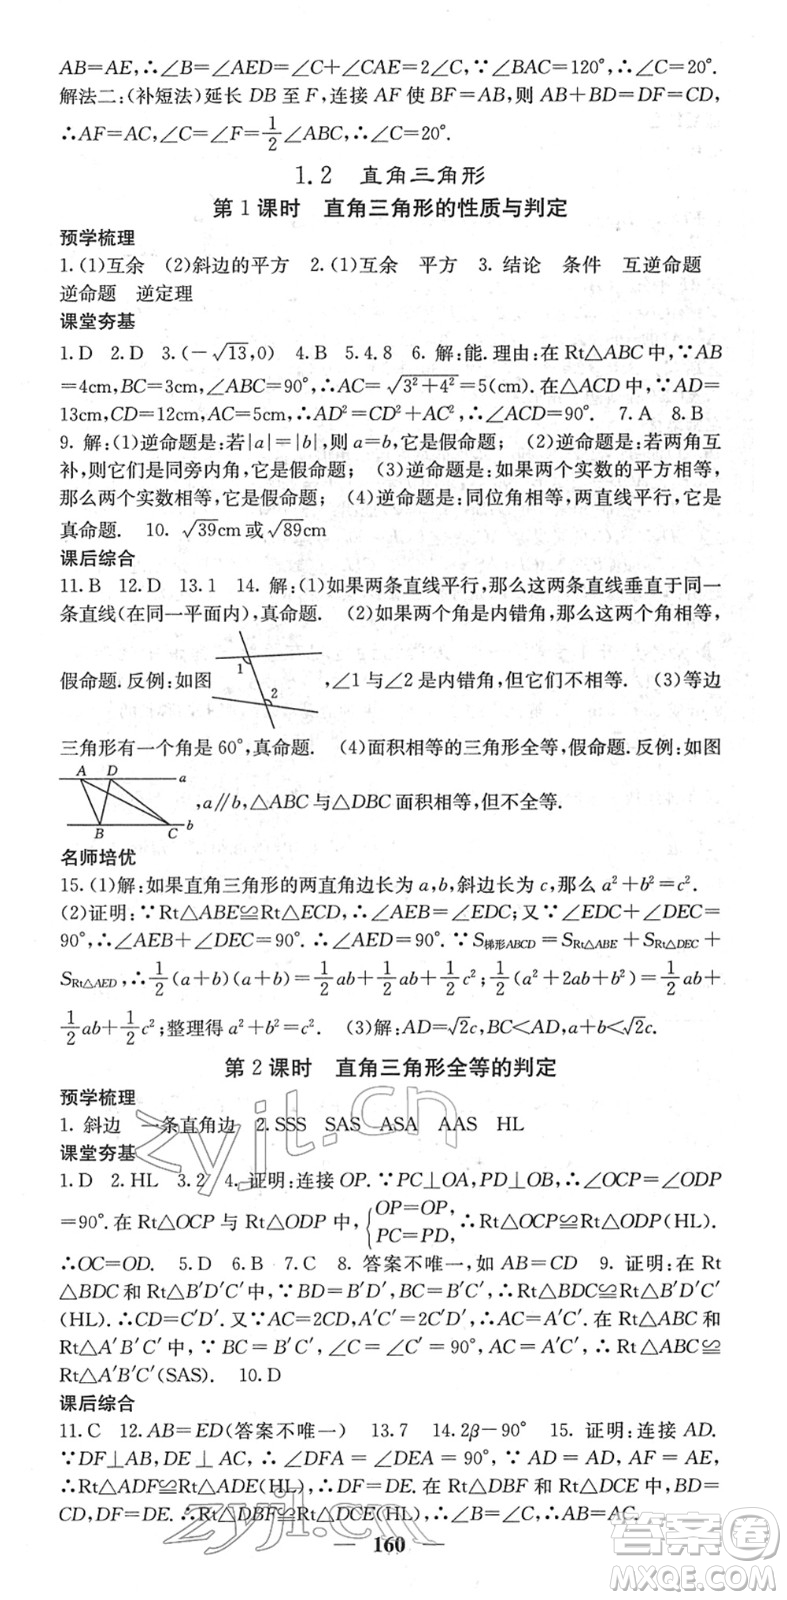 AB=AE,∴∠B=∠AED=∠C+∠CAE=2∠C,∵∠BAC=120°,∴∠C=20°.
解法二:(补短法)延长 DB 至 F,连接 AF 使 BF=AB,则 AB+BD=DF=CD,
∴AF=AC,∠C=∠F=1/2∠ABC,∴∠C=20°.
1.2 直角三角形
第 1 课时 直角三角形的性质与判定
预学梳理
1.(1)互余 (2)斜边的平方 2.(1)互余 平方 3. 结论 条件 互逆命题
逆命题 逆定理
课堂夯基
1.D 2.D 3.(-√13,0) 4.B 5.4.8 6. 解:能. 理由:在 Rt△ABC 中,∵AB
=4cm,BC=3cm,∠ABC=90°,∴AC=√(3²+4²)=5(cm). 在△ACD 中,∵AD=
13cm,CD=12cm,AC=5cm,∴AD²=CD²+AC²,∴∠ACD=90°. 7.A 8.B
9. 解:(1)逆命题是:若|a|=|b|,则 a=b,它是假命题; (2)逆命题是:若两角互
补,则它们是同旁内角,它是假命题; (3)逆命题是:如果两个实数的平方相等,
那么两个实数相等,它是假命题; (4)逆命题是:同位角相等,两直线平行,它是
真命题. 10. √39cm 或√89cm
课后综合
11.B 12.D 13.1 14. 解:(1)如果两条直线平行,那么这两条直线垂直于同一
条直线(在同一平面内),真命题. (2)如果两个角是内错角,那么这两个角相等,
假命题. 反例:如图 1 2 ,∠1 与∠2 是内错角,但它们不相等. (3)等边
三角形有一个角是 60°,真命题. (4)面积相等的三角形全等,假命题. 反例:如图
A D a B C b ,a∥b,△ABC 与△DBC 面积相等,但不全等.
名师培优
15.(1)解:如果直角三角形的两直角边长为 a,b,斜边长为 c,那么 a²+b²=c².
(2)证明:∵Rt△ABE≌Rt△ECD,∴∠AEB=∠EDC;又∵∠EDC+∠DEC=
90°,∴∠AEB+∠DEC=90°. ∴∠AED=90°. ∵S梯形ABCD=SRt△ABE+SRt△DEC+
SRt△AED,∴1/2(a+b)(a+b)=1/2ab+1/2ab+1/2c²;1/2(a²+2ab+b²)=1/2ab+
1/2ab+1/2c²;整理得 a²+b²=c². (3)解:AD=√2c,BC<AD,a+b<√2c.
第 2 课时 直角三角形全等的判定
预学梳理
1. 斜边 一条直角边 2.SSS SAS ASA AAS HL
课堂夯基
1.D 2.HL 3.2 4. 证明:连接 OP. ∵PC⊥OA,PD⊥OB,∴∠OCP=∠ODP
=90°. 在 Rt△OCP 与 Rt△ODP 中,{OP=OP, PC=PD, ∴Rt△OCP≌Rt△ODP(HL).
∴OC=OD. 5.D 6.B 7.C 8. 答案不唯一,如 AB=CD 9. 证明:在 Rt
△BDC 和 Rt△B′D′C′中,∵BD=B′D′,BC=B′C′,∴Rt△BDC≌Rt△B′D′C′
(HL).∴CD=C′D′. 又∵AC=2CD,A′C′=2C′D′,∴AC=A′C′. 在 Rt△ABC 和
Rt△A′B′C′中,∵BC=B′C′,∠C=∠C′=90°,AC=A′C′,∴Rt△ABC≌
Rt△A′B′C′(SAS). 10.D
课后综合
11.C 12.AB=ED(答案不唯一) 13.7 14.2β-90° 15. 证明:连接 AD.
∵DF⊥AB,DE⊥AC,∴∠DFA=∠DEA=90°. ∵AD=AD,AF=AE,
∴Rt△ADF≌Rt△ADE(HL),∴DF=DE. 在 Rt△DBF 和 Rt△DCE 中,BD=
CD,DF=DE. ∴Rt△DBF≌Rt△DCE(HL),∴∠B=∠C,∴AB=AC.
160
zyjl.cn
zyjl.cn
答案圈
MXQE.COM